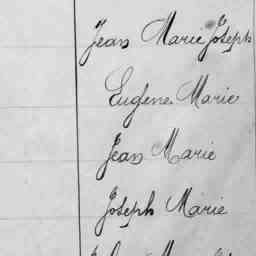 Jean Marie Joseph
Eugene Marie
Jean Marie
Joseph Marie